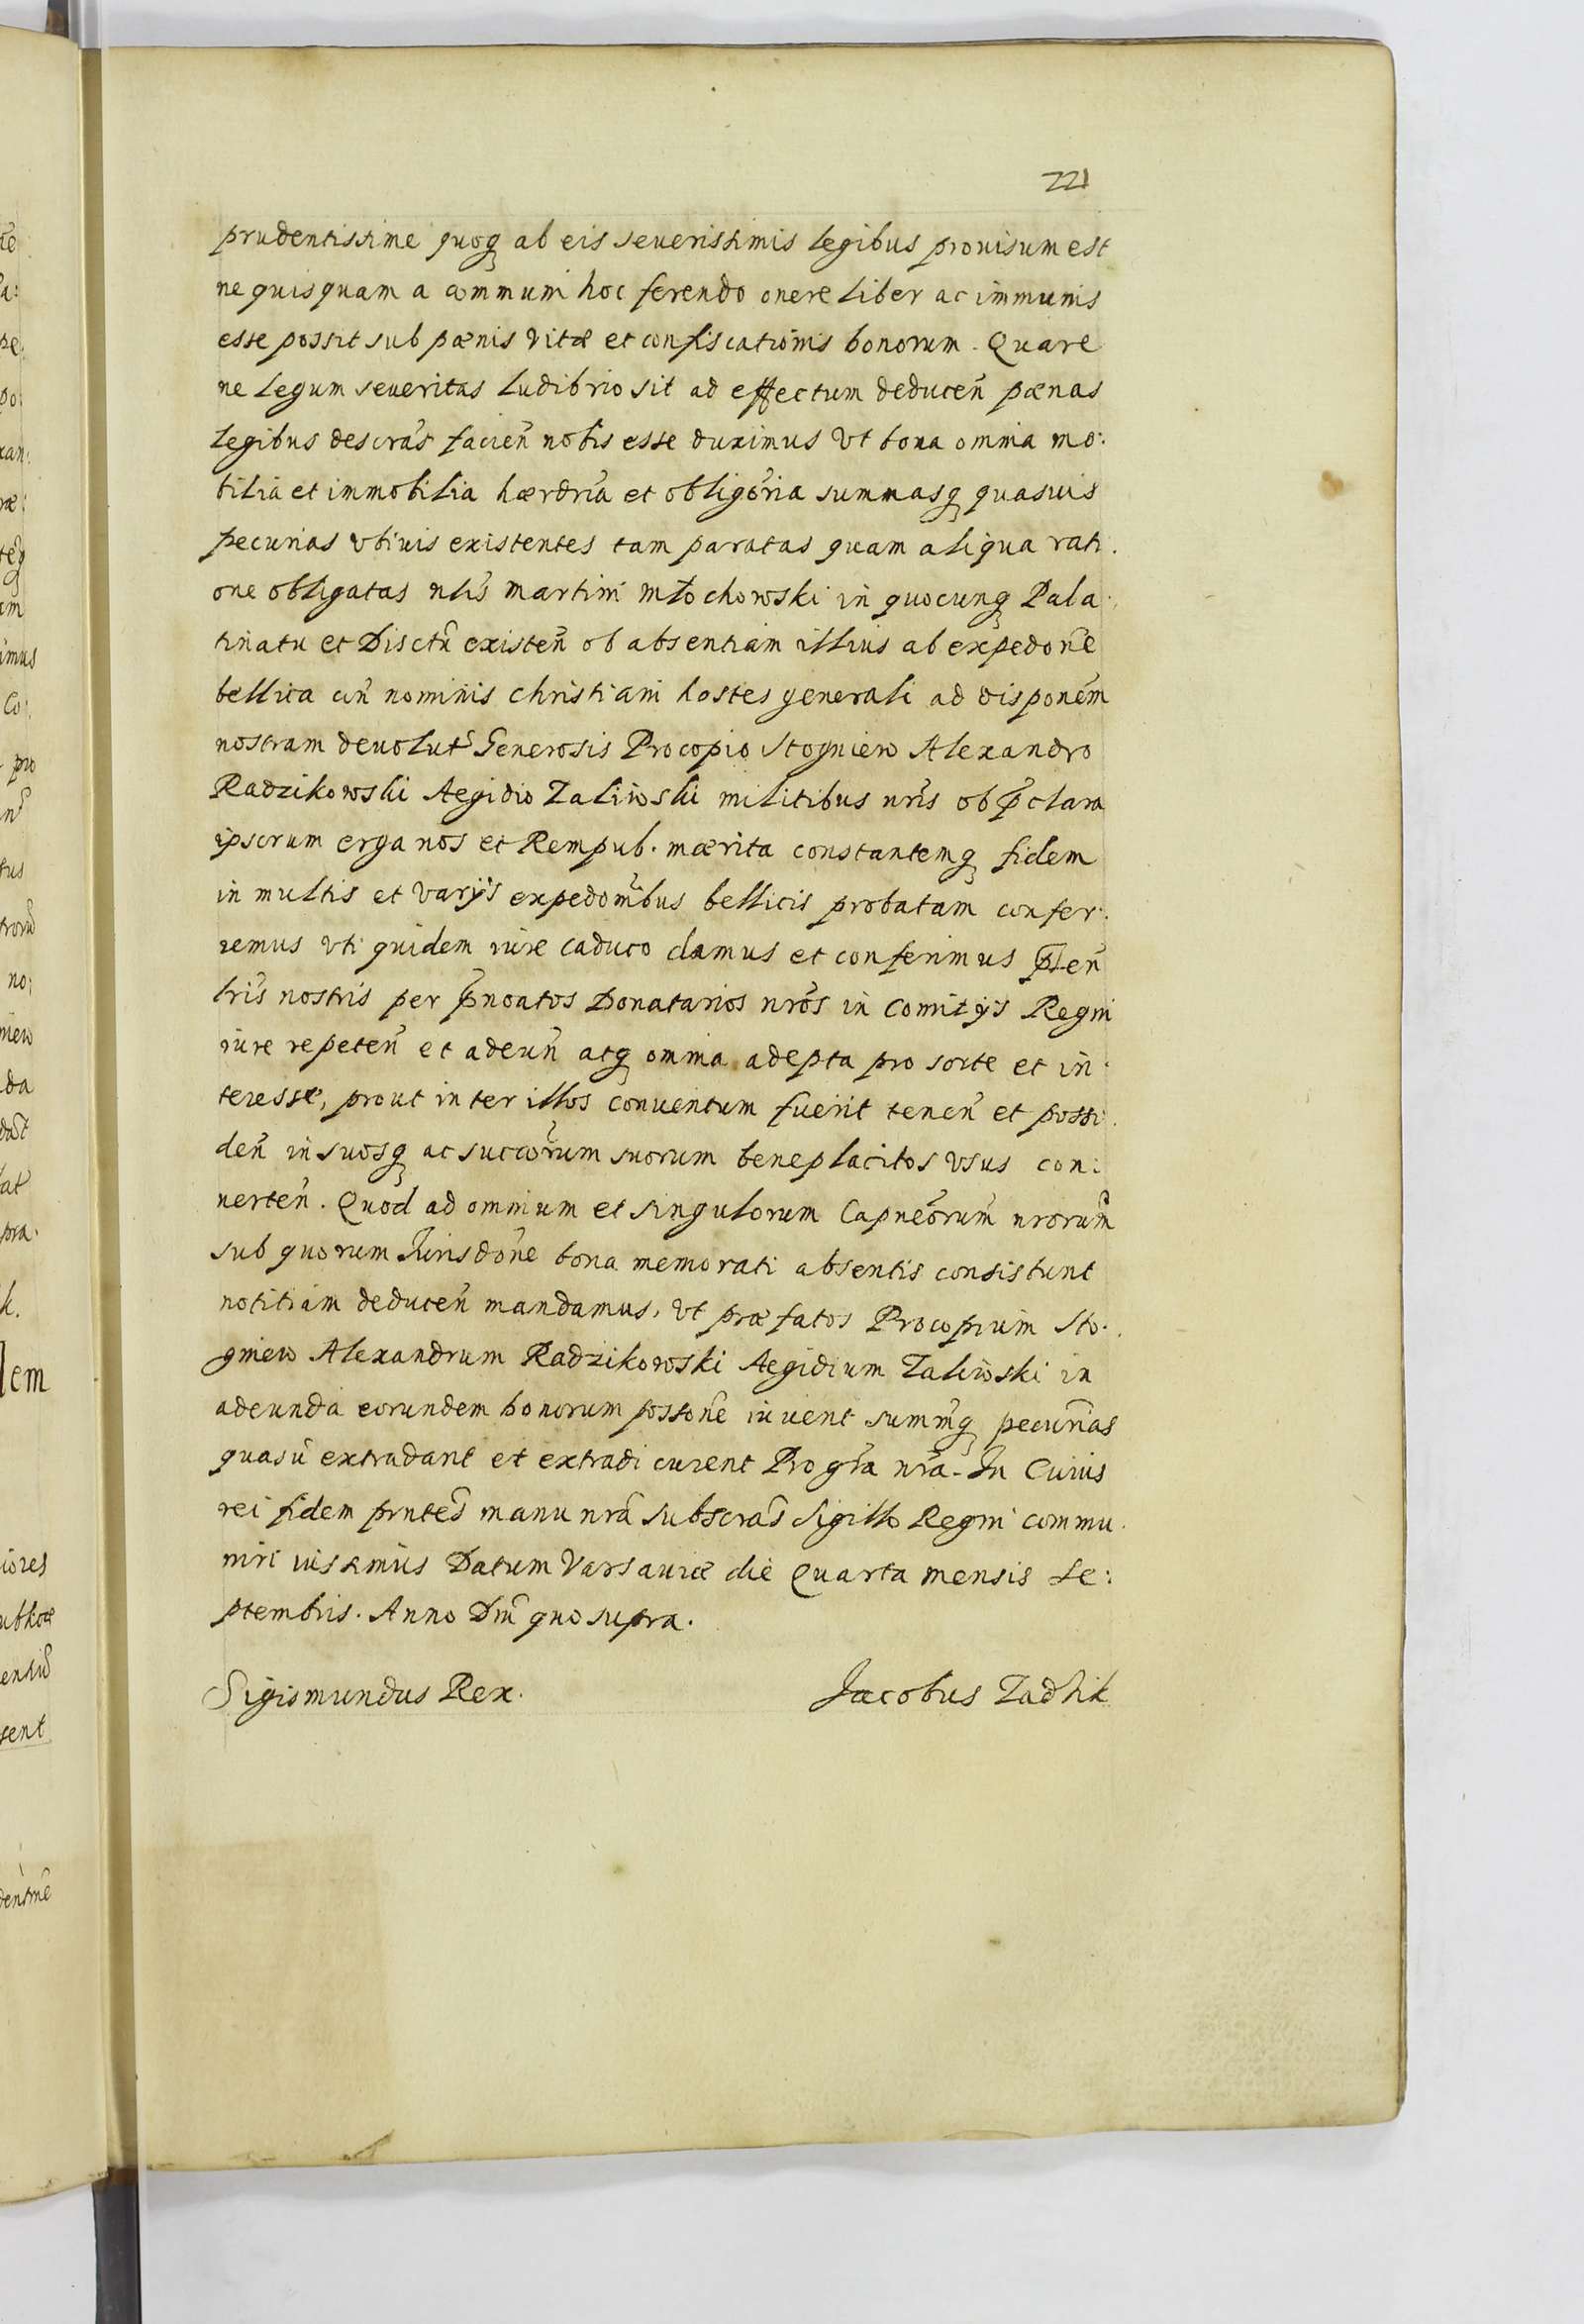 221
prudentissime quoq ab eis seuerissimis legibus prouisum est
ne quisquam a communi hoc ferendo onere liber ac immunis
esse possit sub pœnis vitæ et confiscationis bonorum. Quare
ne legum seueritas ludibrio sit ad effectum deducen̄ pœnas
legibus descrās facien̄ nobis esse duximus vt bona omnia mo:
bilia et immobilia hærdria et obligoria summasq quasuis
pecunias vbiuis existentes tam paratas quam aliqua rati.
one obligatas nlis Martini Młochowski in quocunq Pala:
tinatu et Disctu existen̄ ob absentiam illius ab expedone
bellica cun̄ nominis christiani hostes generali ad disponem
nostram deuolut Generosis Procopio Stogniew Alexandro
Radzikowski Aegidio Zaliwski militibus nris ob p̄clara
ipsorum erga nos et Rempub. mærita constantemq fidem
in multis et varijs expedonibus bellicis probatam confer:
remus vti quidem iure caduco damus et conferimus p̄sen̄
lris nostris per p̄noatos Donatarios nros in Comitijs Regni
iure repeten̄ et adeun̄ atq omnia adepta pro sorte et in:
teresse, prout inter illos conuentum fuerit tenen̄ et possi.
den̄ in suosq ac succorum suorum beneplacitos vsus con:
uerten̄. Quod ad omnium et singulorum Capneorum nrorum
sub quorum Jurisdone bona memorati absentis consistunt
notitiam deducen̄ mandamus, vt præfatos Procopium Sto.
gniew Alexandrum Radzikowski Aegidium Zaliwski in
adeunda eorundem bonorum possone iuuent summq pecunias
quasū extradant et extradi curent Pro gra nra. In Cuius
rei fidem prntes manu nra subscras Sigillo Regni commu.
niri iussimus Datum Varsauiæ die Quarta mensis Se:
ptembris. Anno Dni quo supra.
Sigismundus Rex. Jacobus Zadzik